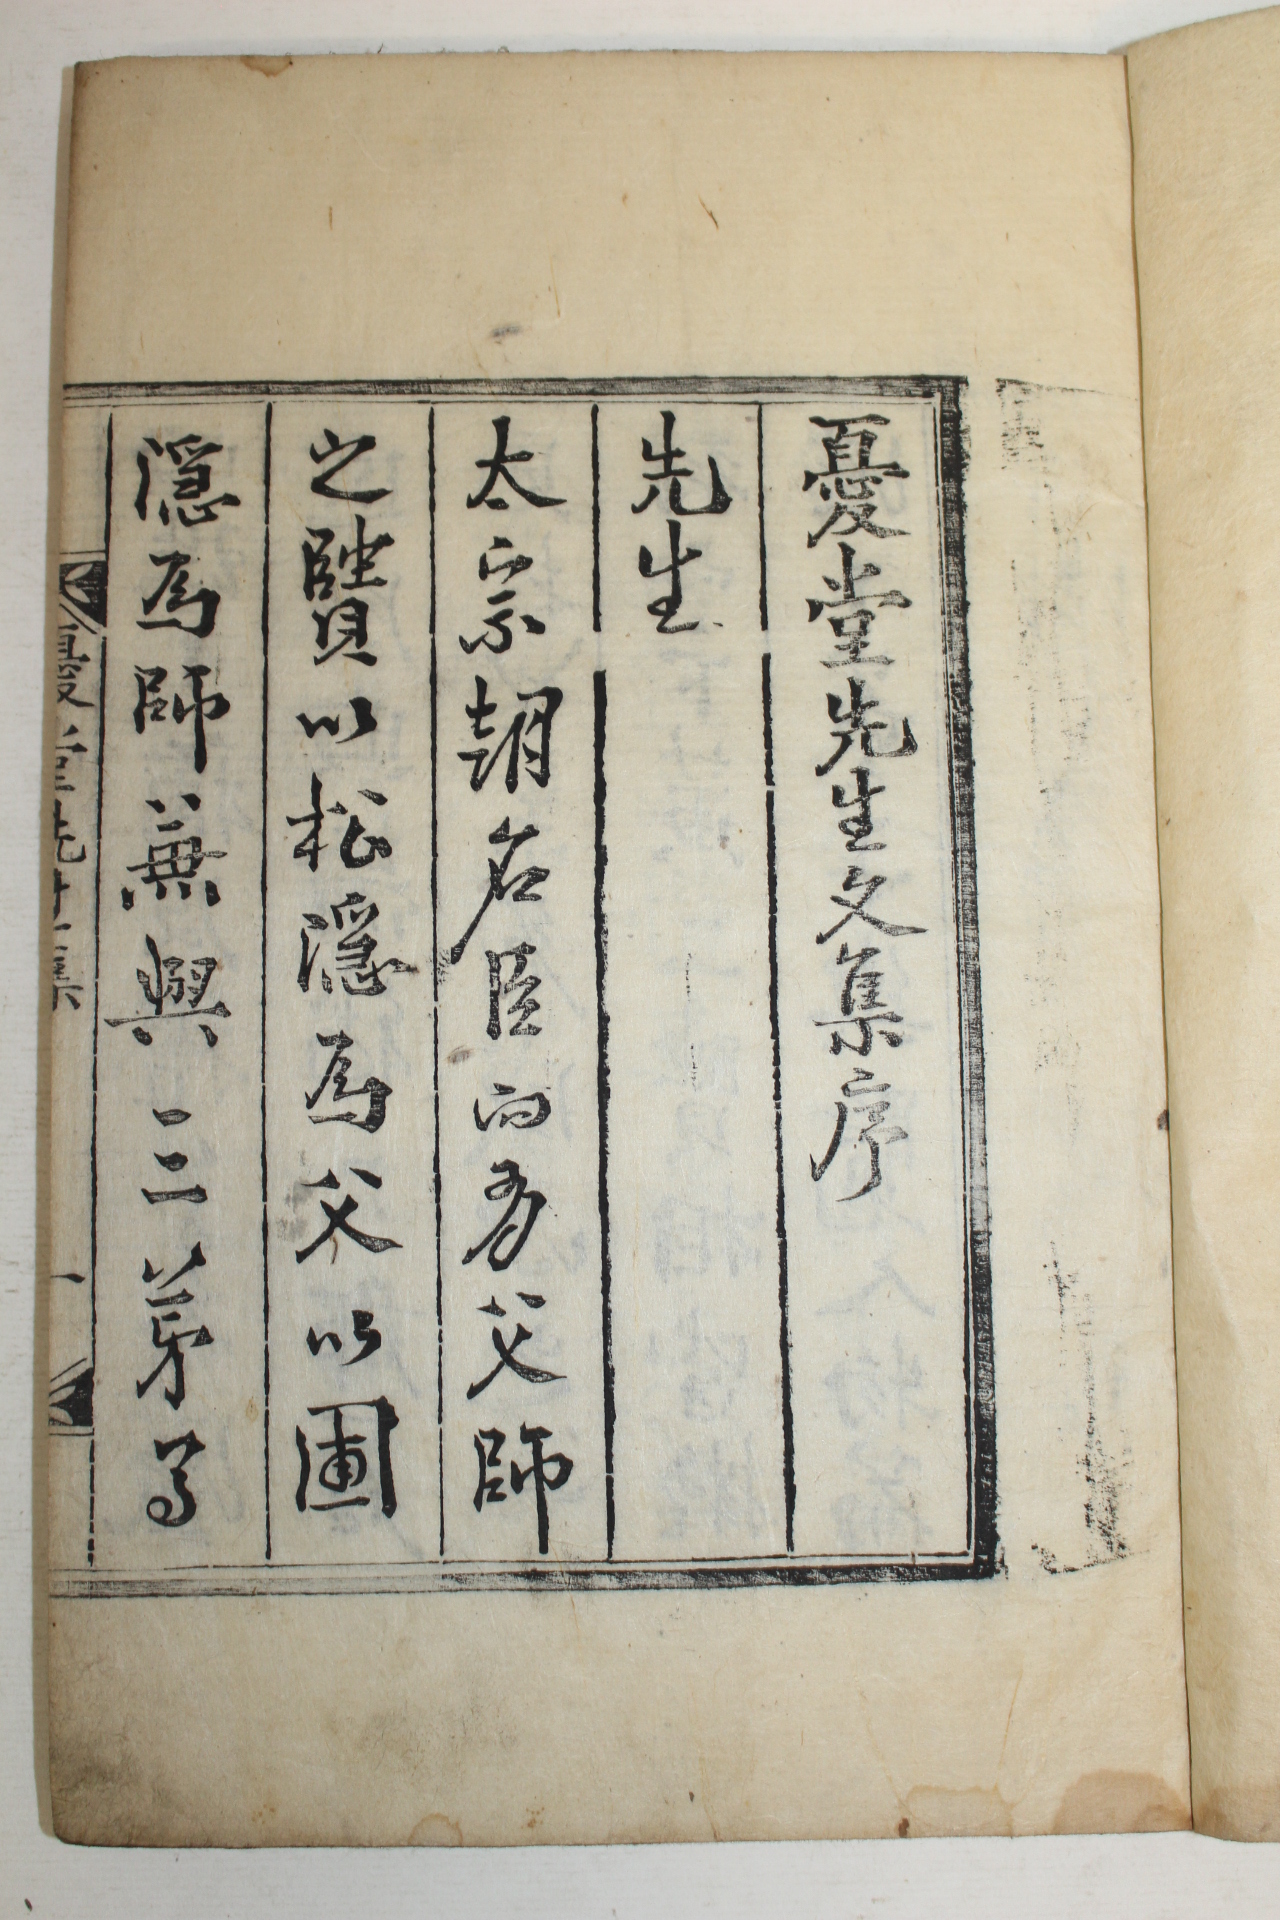 憂堂先生文集序
先生
太宗朝名臣向有父師
之賢以松隱爲父以圃
隱爲師兼與二三弟
憂堂先生集
一